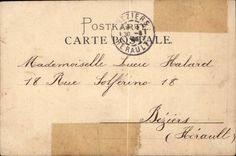 POSTKARTE
CARTE POSTALE.
BÉZIERS
HÉRAULT
Mademoiselle Lucie Halard
18 Rue Solférino 18
Béziers
(Hérault)